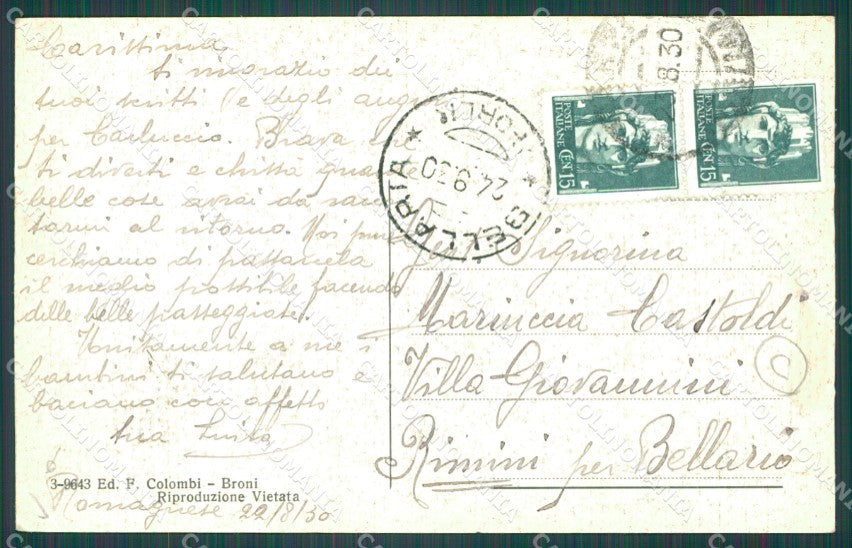 Carissima
ti ringrazio dei
tuoi scritti (e degli augu
per Carluccio. Brava che
ti diverti e chissà quante
belle cose avrai da raccon
tarmi al ritorno. Noi pure
cerchiamo di passarcela
il meglio possibile facendo
delle belle passeggiate.
Unitamente a me i
bambini ti salutano e
baciano con affetto
tua Luisa
Romagnese 22/8/30
3-9643 Ed. F. Colombi - Broni
Riproduzione Vietata
8.30
POSTE ITALIANE CEN 15
POSTE ITALIANE CEN 15
BELLARIA * (FORLI) *
24.8.30
Gent. Signorina
Mariuccia Castoldi
Villa Giovannini
Rimini per Bellaria
C
CARTOLINOMANIA